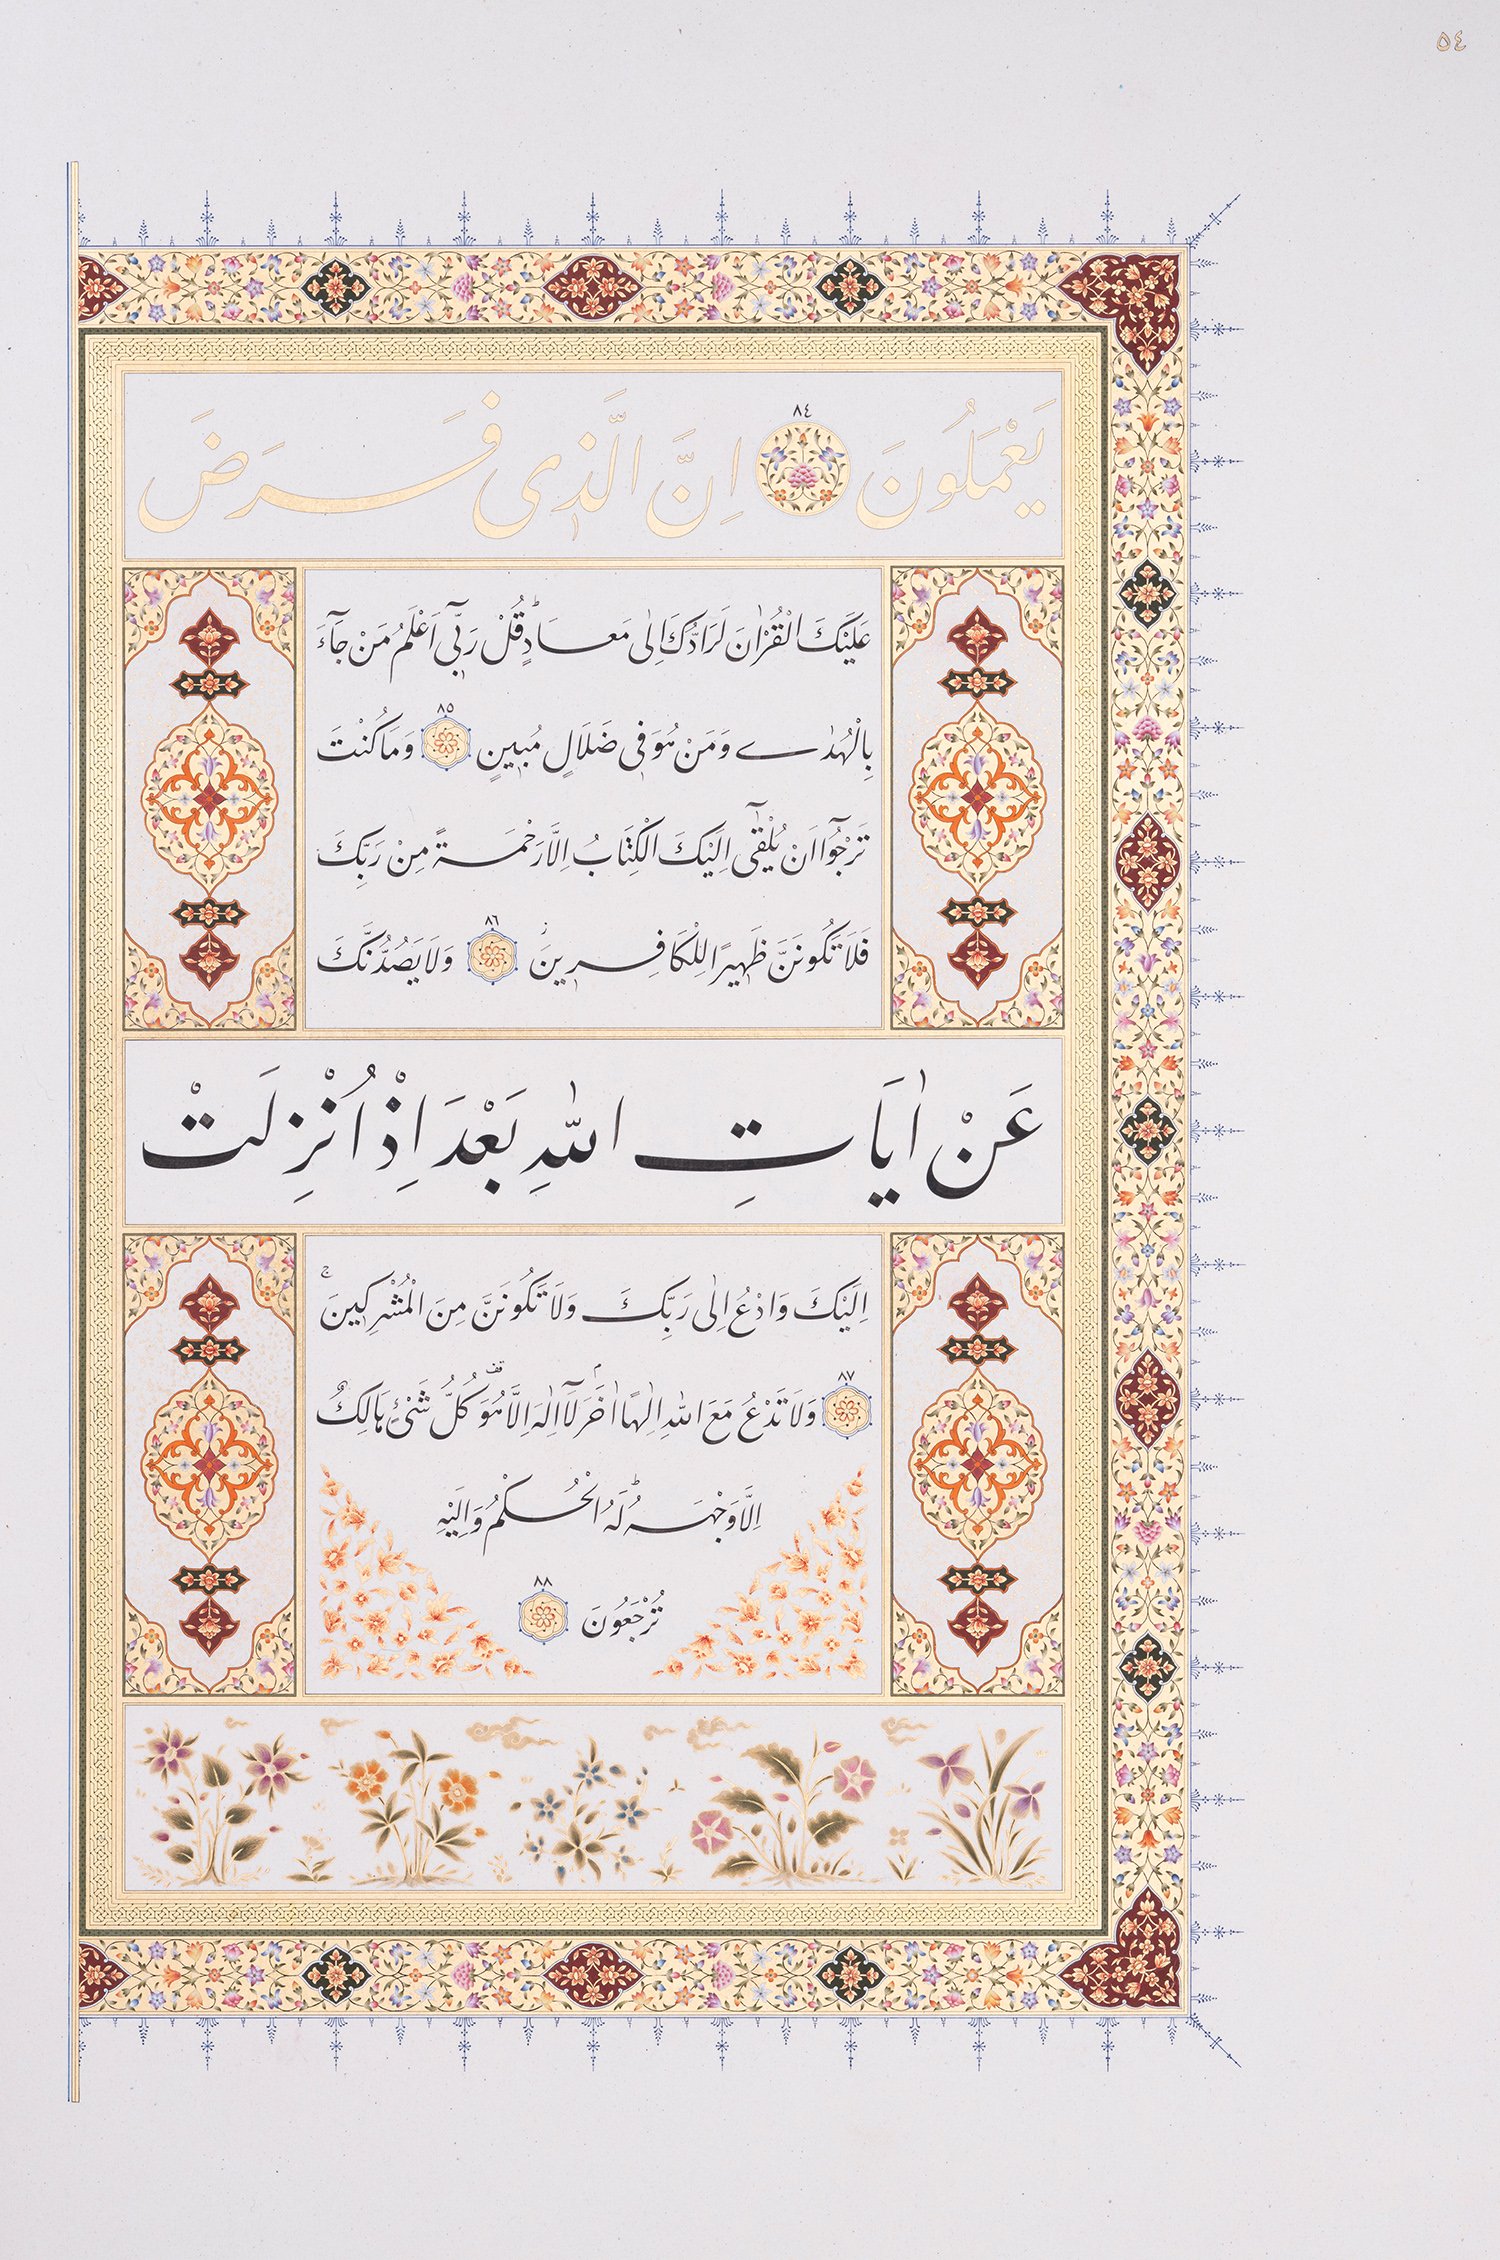 ٥٤
يَعْمَلُونَ ٨٤ اِنَّ الَّذٖى فَرَضَ
عَلَيْكَ الْقُرْاٰنَ لَرَادُّكَ اِلٰى مَعَادٍؕ قُلْ رَبّٖٓى اَعْلَمُ مَنْ جَٓاءَ
بِالْهُدٰى وَمَنْ هُوَ فٖى ضَلَالٍ مُبٖينٍ ٨٥ وَمَا كُنْتَ
تَرْجُٓوا اَنْ يُلْقٰٓى اِلَيْكَ الْكِتَابُ اِلَّا رَحْمَةً مِنْ رَبِّكَ
فَلَا تَكُونَنَّ ظَهٖيرًا لِلْكَافِرٖينَؗ ٨٦ وَلَا يَصُدُّنَّكَ
عَنْ اٰيَاتِ اللّٰهِ بَعْدَ اِذْ اُنْزِلَتْ
اِلَيْكَ وَادْعُ اِلٰى رَبِّكَ وَلَا تَكُونَنَّ مِنَ الْمُشْرِكٖينَۚ
٨٧ وَلَا تَدْعُ مَعَ اللّٰهِ اِلٰهًا اٰخَرَۢ لَٓا اِلٰهَ اِلَّا هُوَ قف كُلُّ شَىْءٍ هَالِكٌ
اِلَّا وَجْهَهُؕ لَهُ الْحُكْمُ وَاِلَيْهِ
تُرْجَعُونَ ٨٨